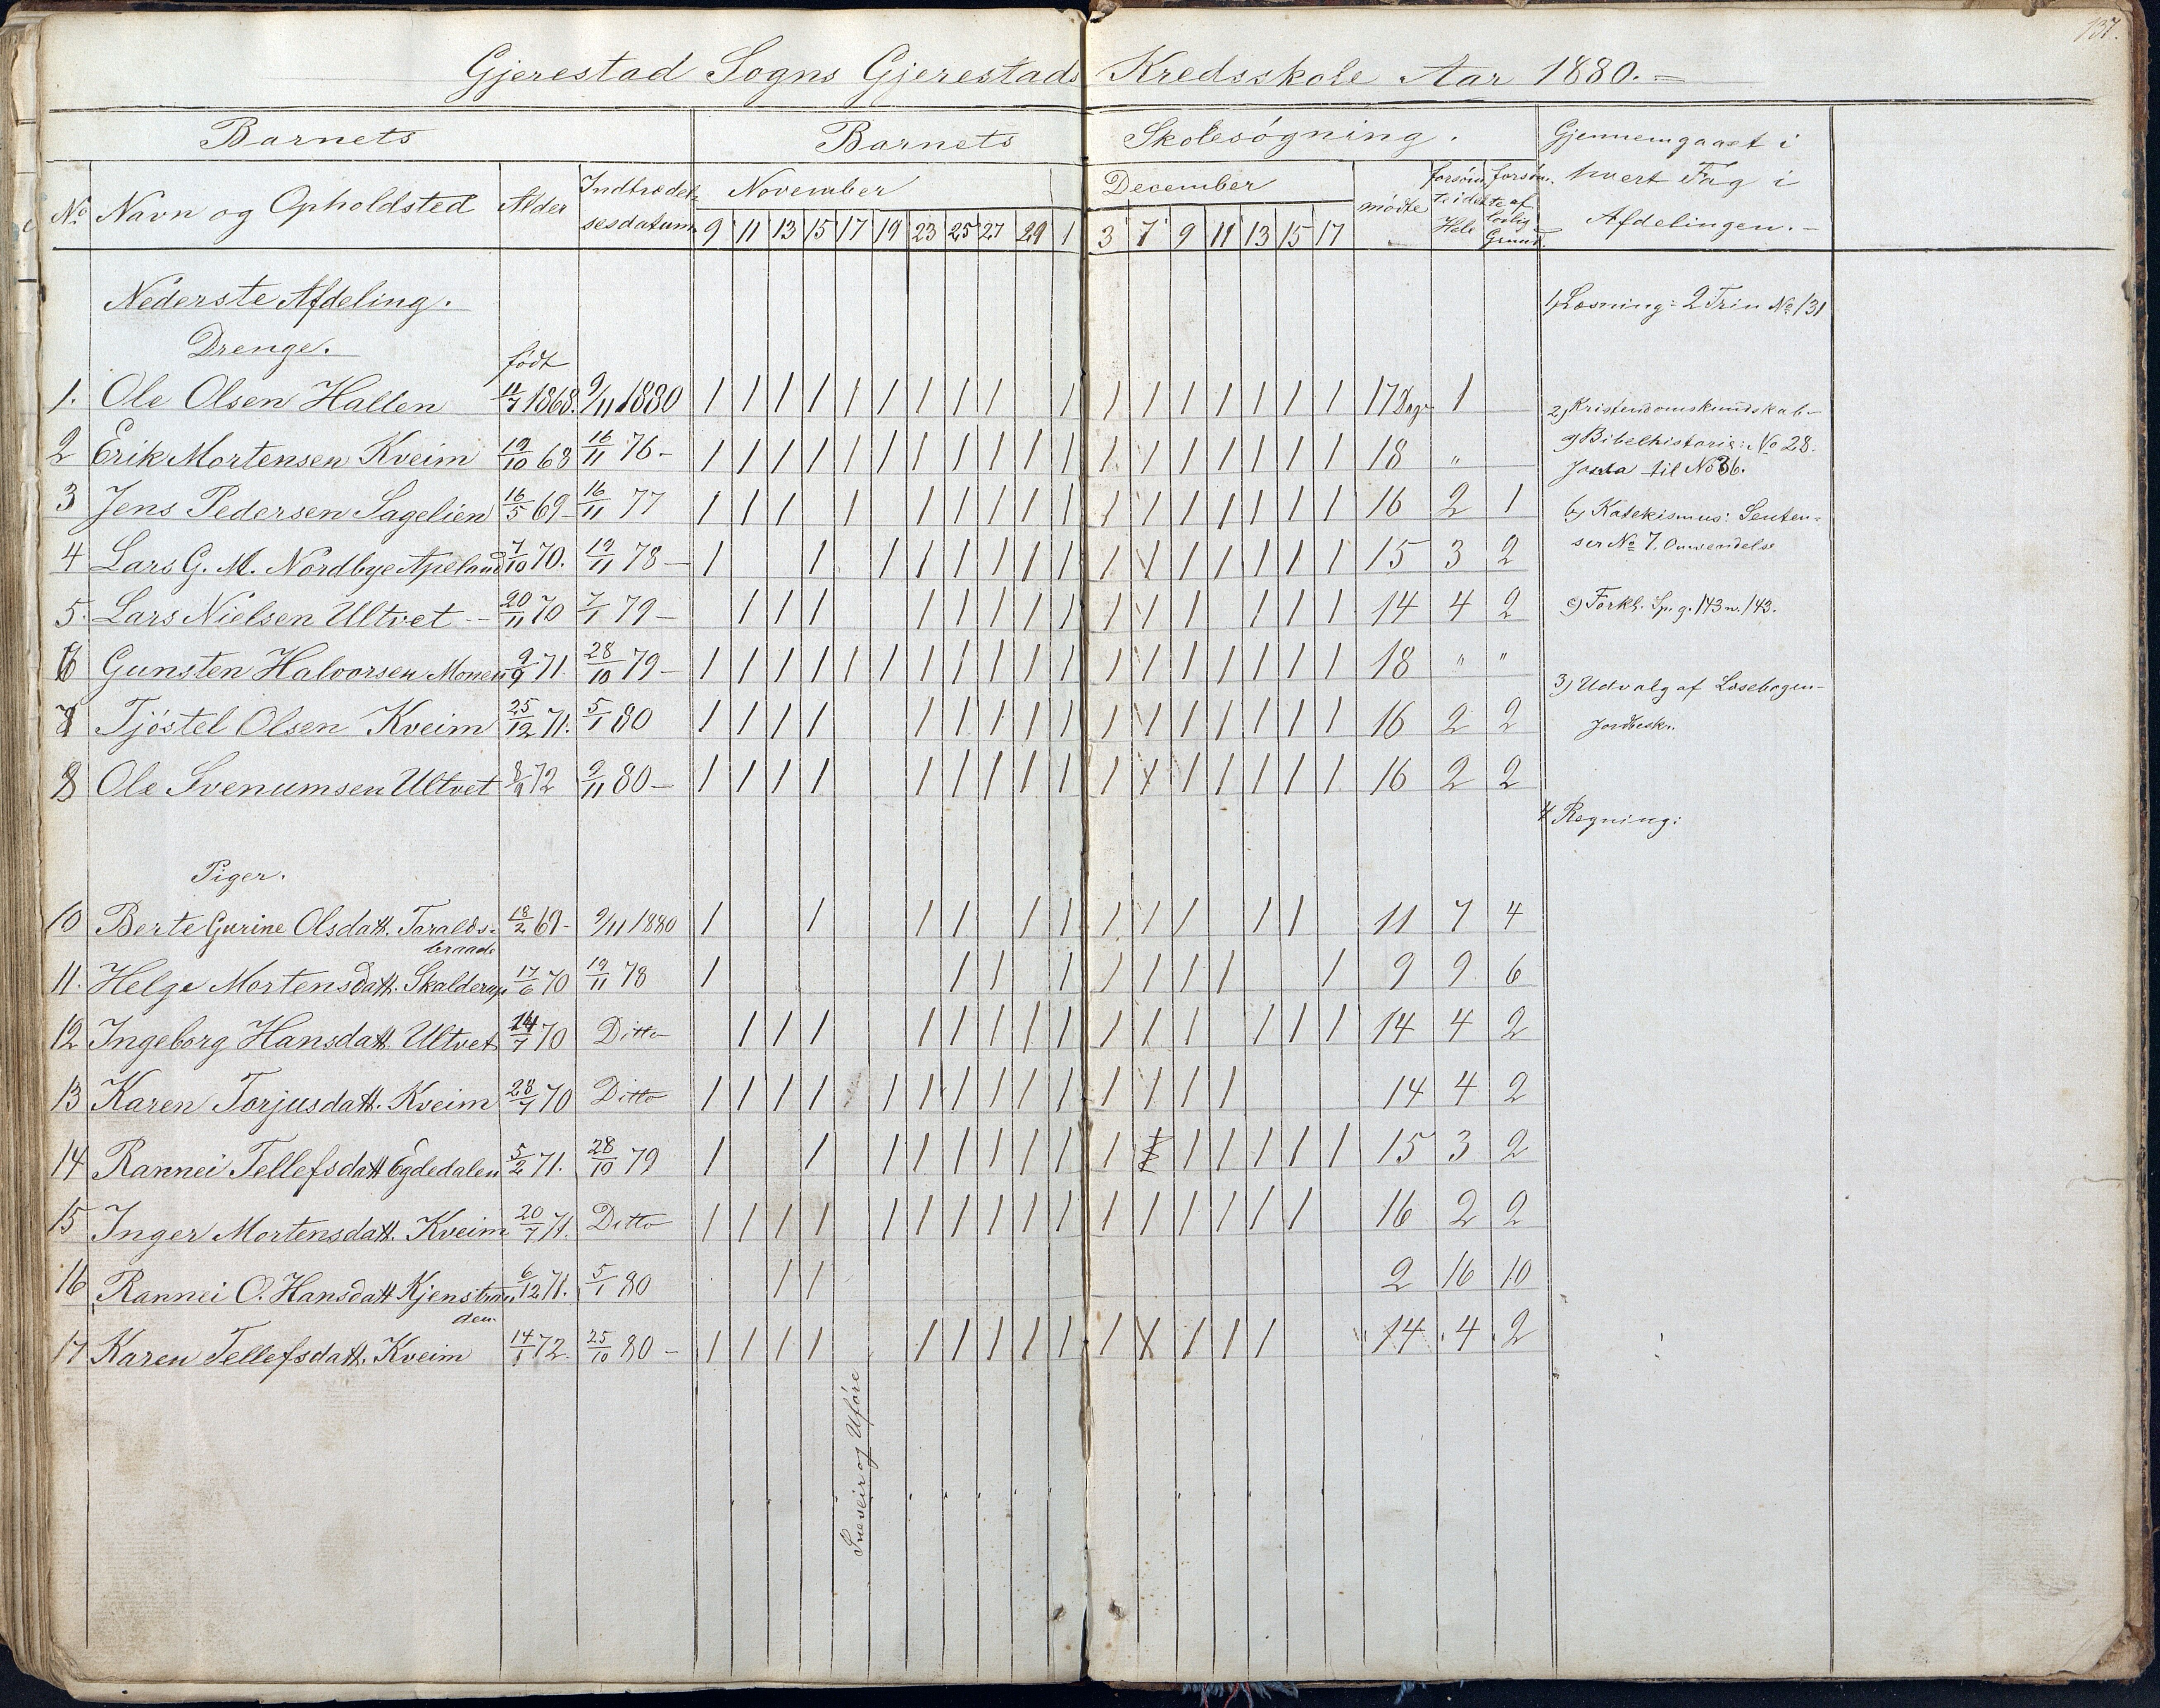 137.
Gjerestad Sogns Gjerestads Kredsskole Aar 1880.=
Barnets Barnets Skolesøgning. Gjennemgaaet i
hvert Fag i
Afdelingen.-
No Navn og Opholdsted Alder Indtrædel= November December mødte forsøm= forsøm.
sesdatum te i det te af
Hele lovlig
Grund.
9 11 13 15 17 19 23 25 27 29 1 3 7 9 11 13 15 17
Nederste Afdeling. 1, Læsning: 2 Trin No 131
Drenge. født
1. Ole Olsen Hallen 11/7 1868. 9/11 1880 / / / / / / / / / / / / / / / / / 17 Dage 1
2, Kristendomskundskab-
2 Erik Mortensen Kveim 19/10 68 16/11 76- / / / / / / / / / / / / / / / / / / 18 "
a) Bibelhistorie: No 28.
Josva til No 36.
3 Jens Pedersen Sagelien 16/5 69- 16/11 77 / / / / / / / / / / / / / / / / 16 2 1
b, Katekismus: Senten=
ser No 7. Anvendelse
4 Lars G. M. Nordbye Apeland 7/10 70. 19/11 78- / / / / / / / / / / / / / / / 15 3 2
5. Lars Nielsen Ultvet -- 20/11 70 7/1 79- / / / / / / / / / / / / / / 14 4 2
c) Forkl. Sp. g. 143 n. 143.
6 Gunsten Halvorsen Monen 9/9 71. 28/10 79- / / / / / / / / / / / / / / / / / / 18 " "
3) Udvalg af Læsebogen-
Jordbesk..
7 Tjøstel Olsen Kveim 25/12 71. 5/1 80 / / / / / / / / / / / / / / / / 16 2 2
8 Ole Svenumsen Ultvet 8/9 72 9/11 80- / / / / / / / / / / / / / / / / 16 2 2
4 Regning:
Piger.
10 Berte Gurine Olsdatt. Taralds- 18/2 69- 9/11 1880 / / / / / / / / / / / 11 7 4
braate
11. Helge Mortensdatt. Skalderup 17/6 70 19/11 78 / / / / / / / / / 9 9 6
12 Ingeborg Hansdatt. Ultvet 14/7 70 Ditto / / / / / / / / / / / / / / 14 4 2
13 Karen Torjusdatt. Kveim 28/7 70 Ditto / / / / / / / / / / / / / / 14 4 2
14 Rannei Tellefsdatt Egdedalen 5/2 71. 28/10 79 / / / / / / / / / / / / / / / 15 3 2
15 Inger Mortensdatt. Kveim 20/7 71. Ditto / / / / / / / / / / / / / / / / 16 2 2
16 Rannei O. Hansdatt Kjenstran 6/12 71. 5/1 80 / / 2 16 10
den
17 Karen Tellefsdatt. Kveim 14/1 72. 25/10 80- / / / / / / / / / / / / / / 14 4 2
Sneveir og Uføre